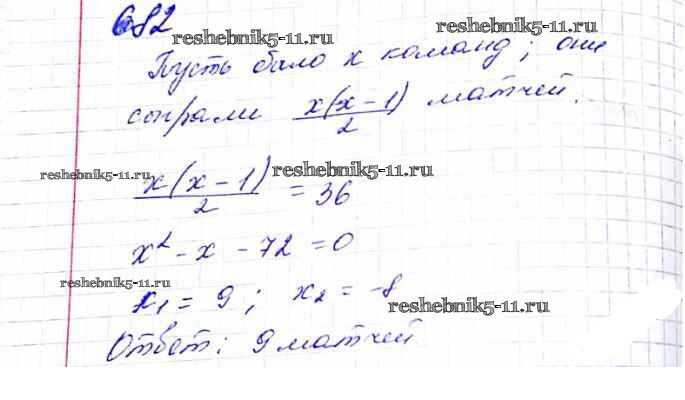 682
reshebnik5-11.ru
Пусть было x команд; они
сыграли x(x-1)/2 матчей.
reshebnik5-11.ru reshebnik5-11.ru
x(x-1)/2 = 36
x² - x - 72 = 0
reshebnik5-11.ru
x₁ = 9; x₂ = -8
reshebnik5-11.ru
Ответ: 9 матчей